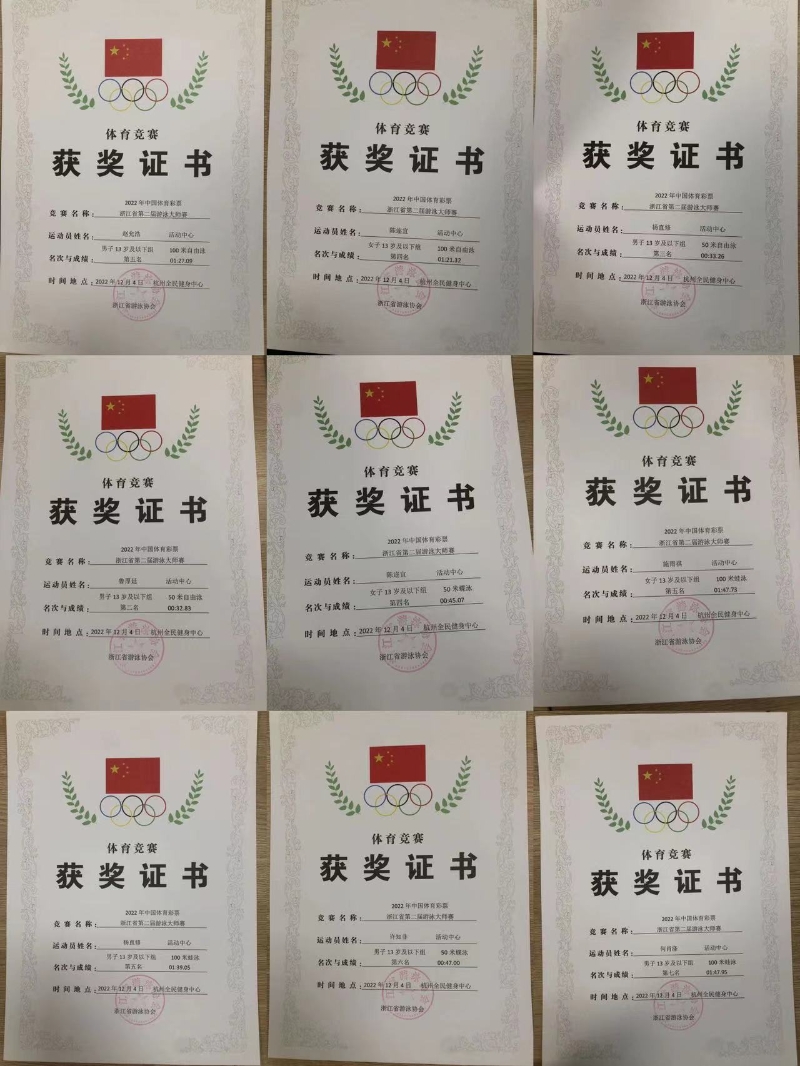 体育竞赛
获奖证书
2022 年中国体育彩票
竞赛名称：浙江省第二届游泳大师赛
运动员姓名：赵允浩 活动中心
男子 13 岁及以下组 100 米自由泳
名次与成绩：第五名 01:27.09
时间地点：2022 年 12 月 4 日 杭州全民健身中心
浙江省游泳协会
体育竞赛
获奖证书
2022 年中国体育彩票
竞赛名称：浙江省第二届游泳大师赛
运动员姓名：陈谊宜 活动中心
女子 13 岁及以下组 100 米自由泳
名次与成绩：第四名 01:21.32
时间地点：2022 年 12 月 4 日 杭州全民健身中心
浙江省游泳协会
体育竞赛
获奖证书
2022 年中国体育彩票
竞赛名称：浙江省第二届游泳大师赛
运动员姓名：杨直修 活动中心
男子 13 岁及以下组 50 米自由泳
名次与成绩：第三名 00:33.26
时间地点：2022 年 12 月 4 日 杭州全民健身中心
浙江省游泳协会
体育竞赛
获奖证书
2022 年中国体育彩票
竞赛名称：浙江省第二届游泳大师赛
运动员姓名：鲁厚延 活动中心
男子 13 岁及以下组 50 米自由泳
名次与成绩：第二名 00:37.83
时间地点：2022 年 12 月 4 日 杭州全民健身中心
浙江省游泳协会
体育竞赛
获奖证书
2022 年中国体育彩票
竞赛名称：浙江省第二届游泳大师赛
运动员姓名：陈谊宜 活动中心
女子 13 岁及以下组 50 米蝶泳
名次与成绩：第四名 00:45.07
时间地点：2022 年 12 月 4 日 杭州全民健身中心
浙江省游泳协会
体育竞赛
获奖证书
2022 年中国体育彩票
竞赛名称：浙江省第二届游泳大师赛
运动员姓名：施雨祺 活动中心
女子 13 岁及以下组 100 米蛙泳
名次与成绩：第五名 01:47.73
时间地点：2022 年 12 月 4 日 杭州全民健身中心
浙江省游泳协会
体育竞赛
获奖证书
2022 年中国体育彩票
竞赛名称：浙江省第二届游泳大师赛
运动员姓名：杨直修 活动中心
男子 13 岁及以下组 100 米蛙泳
名次与成绩：第五名 01:39.05
时间地点：2022 年 12 月 4 日 杭州全民健身中心
浙江省游泳协会
体育竞赛
获奖证书
2022 年中国体育彩票
竞赛名称：浙江省第二届游泳大师赛
运动员姓名：许知非 活动中心
男子 13 岁及以下组 50 米蝶泳
名次与成绩：第六名 00:47.00
时间地点：2022 年 12 月 4 日 杭州全民健身中心
浙江省游泳协会
体育竞赛
获奖证书
2022 年中国体育彩票
竞赛名称：浙江省第二届游泳大师赛
运动员姓名：活动中心
男子 13 岁及以下组 100 米蛙泳
名次与成绩：第七名 01:47.95
时间地点：2022 年 12 月 4 日 杭州全民健身中心
浙江省游泳协会